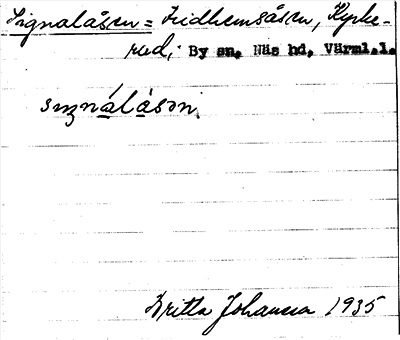 Signalåsen = Fridhemsåsen, Kyrke-
rud, By sn, Näs hd, Värml.l.
siŋnálåsən
Britta Johansson 1935